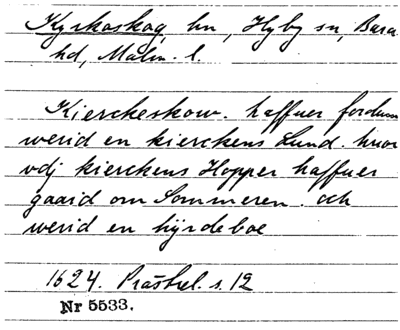 Kyrkoskog, hn, Hyby sn, Bara
hd, Malm. l.
Kierckeskouw. haffuer fordum
werid en kierckens Lund. huor
vdj kierckens Hopper haffuer
gaaid om Sommeren. och
werid en hyrdeboe
1624. Prästrel. s. 12
Nr 5533.